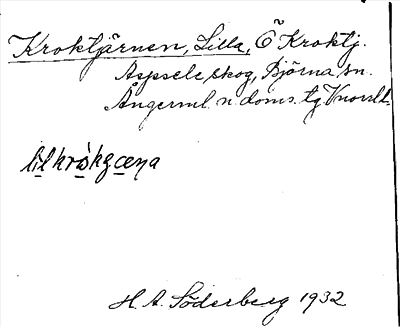 Kroktjärnen, Lilla, Ö Kroktj.
Aspsele skog, Björna sn.
Ångerml. n. doms. tg Vnorrl.l.
lil krokgæna
H. A. Söderberg 1932